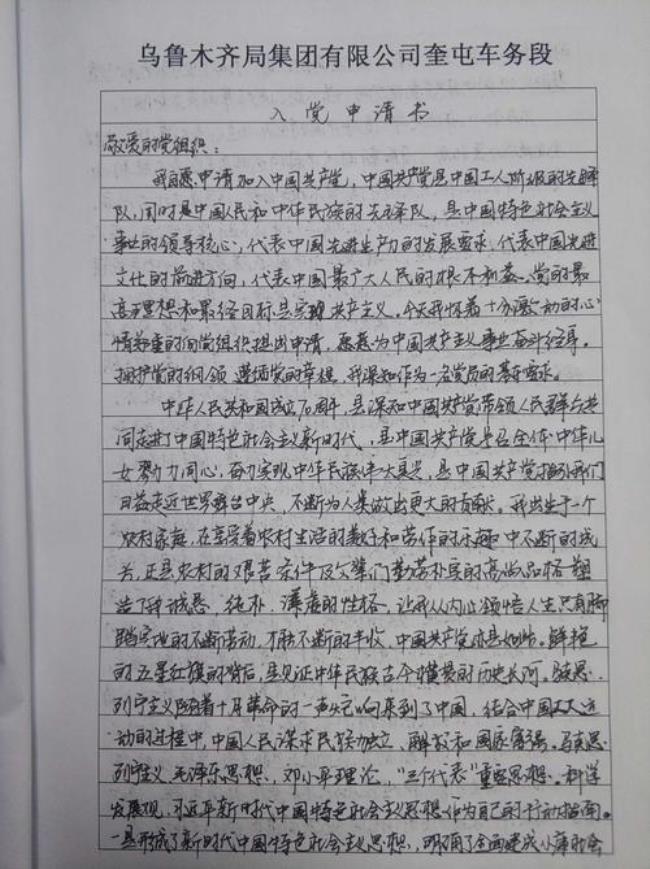 乌鲁木齐局集团有限公司奎屯车务段
入党申请书
敬爱的党组织：
我自愿申请加入中国共产党，中国共产党是中国工人阶级的先锋
队，同时是中国人民和中华民族的先锋队，是中国特色社会主义
事业的领导核心，代表中国先进生产力的发展要求，代表中国先进
文化的前进方向，代表中国最广大人民的根本利益。党的最
高理想和最终目标是实现共产主义。今天我怀着十分激动的心
情郑重的向党组织提出申请，愿意为中国共产主义事业奋斗终身。
拥护党的纲领 遵循党的章程，我深知作为一名党员的基本要求。
中华人民共和国成立70周年，是深知中国共产党带领人民群众共
同走进了中国特色社会主义新时代，是中国共产党号召全体中华儿
女勠力同心，奋力实现中华民族伟大复兴，是中国共产党指引我们
日益走近世界舞台中央，不断为人类做出更大的贡献。我出生于一个
农村家庭，在享受着农村生活的美好和劳作的乐趣中不断的成
长，正是农村的艰苦条件及父辈们勤劳朴实的高尚品格塑
造了我诚恳，纯朴，谦虚的性格，让我从内心领悟人生只有脚
踏实地的不断劳动，才能不断的丰收，中国共产党亦是如此。鲜艳
的五星红旗的背后，是见证中华民族古今横贯的历史长河。马克思
列宁主义随着十月革命的一声炮响来到了中国，结合中国工人运
动的过程中，中国人民谋求民族独立、解放和国家富强。马克思
列宁主义 毛泽东思想，邓小平理论，“三个代表”重要思想。科学
发展观，习近平新时代中国特色社会主义思想作为自己的行动指南。
一是形成了新时代中国特色社会主义思想，明确了全面建成小康社会